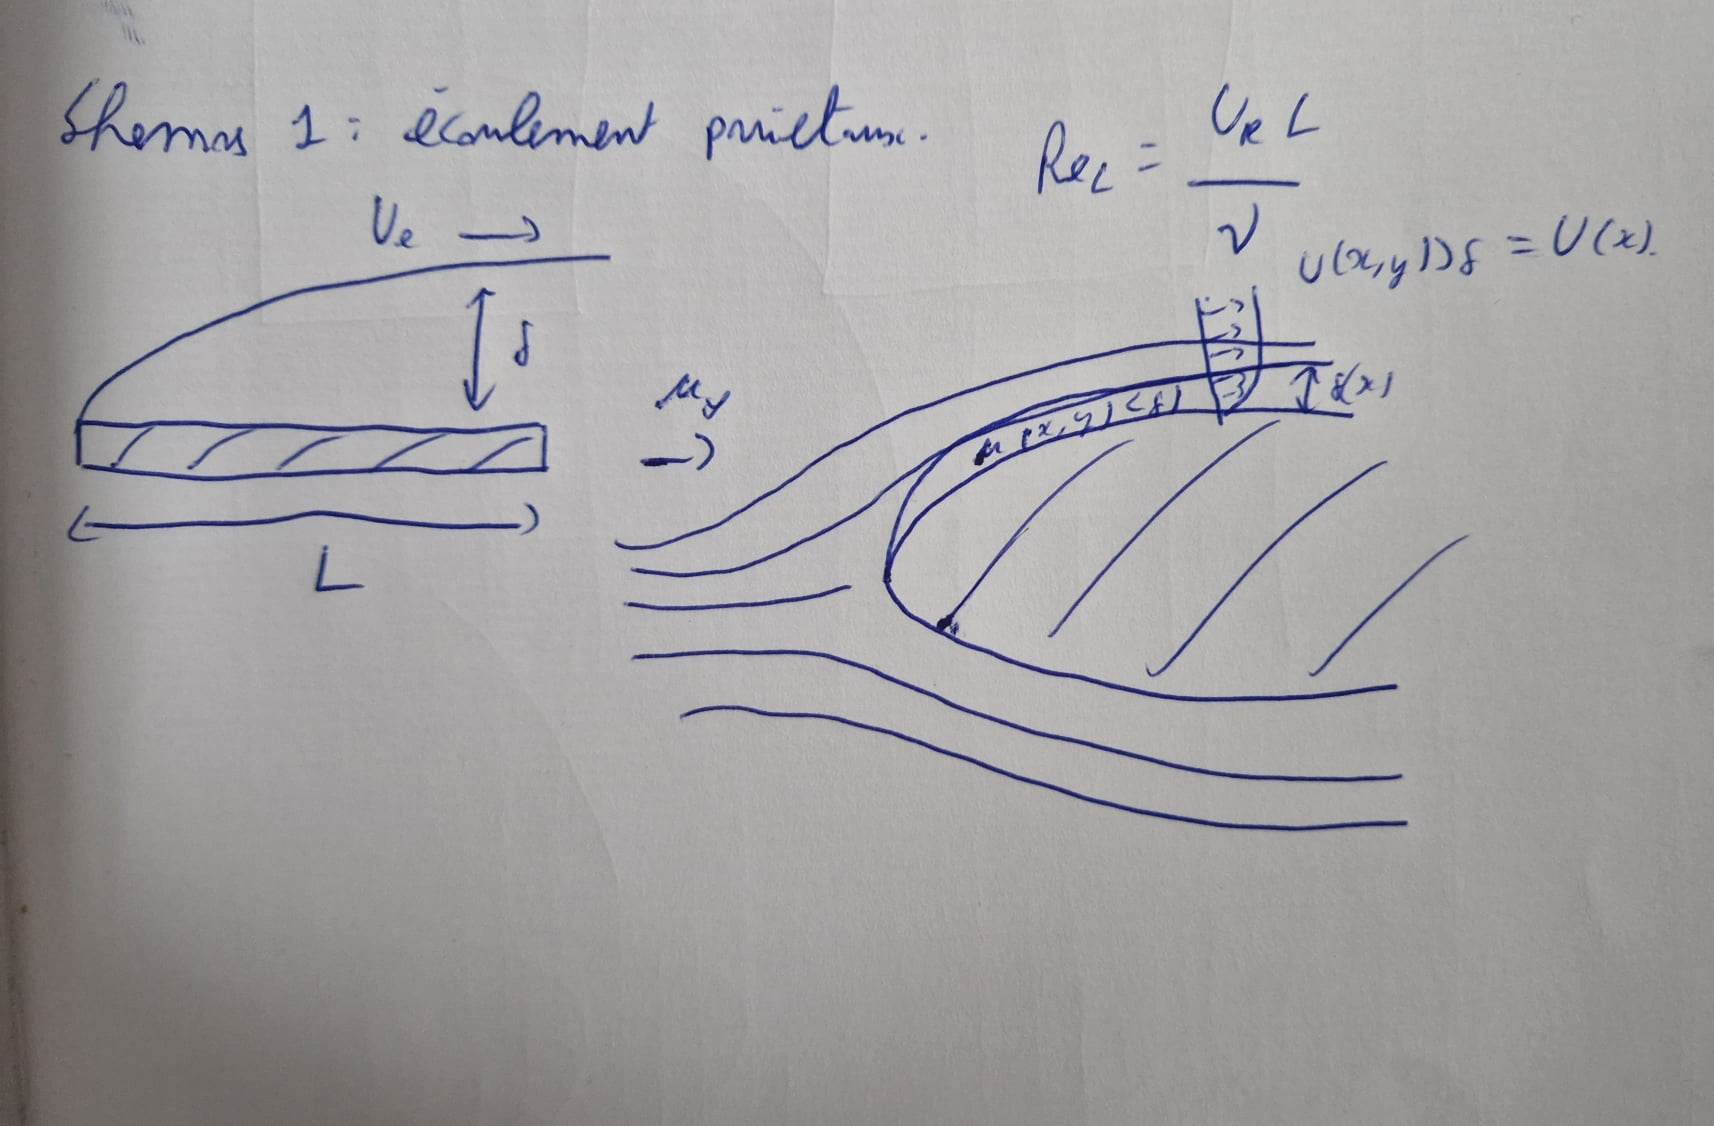 Shemas 1 : écoulement pariétaux.
Re_L = U_R L / ν
U_e →
U(x,y)>δ = U(x).
δ
δ(x)
u(x,y)<δ)
L